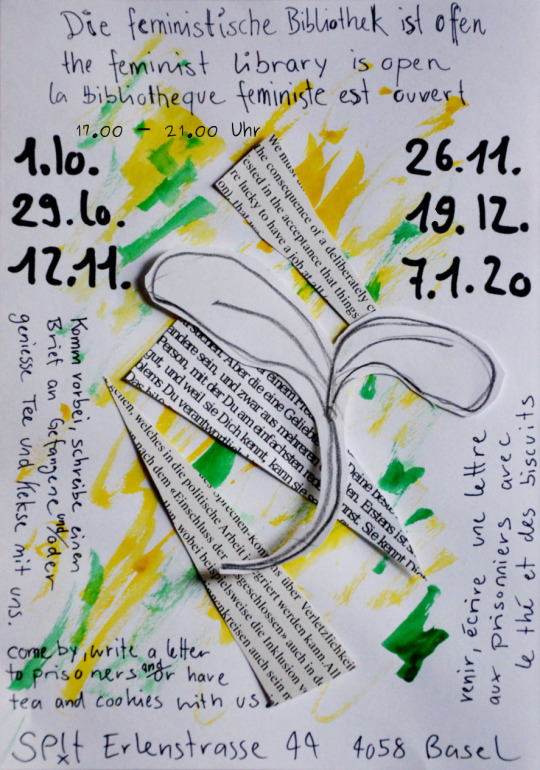 Die feministische Bibliothek ist offen
the feminist library is open
la bibliotheque feministe est ouvert
17.00 – 21.00 Uhr
1.10.
29.10.
12.11.
26.11.
19.12.
7.1.20
We must
the consequence of a deliberately
ested in the acceptance that things
re lucky to have a job at all
on), that
einem
suchen. Aber die eine
andere sein, und zwar aus mehreren
Person, mit der Du am einfachsten
gut, und weil sie Dich kennt, kann sie
blems Du verantwortlich
Das
Deine
den. Erstens ist
nnst. Sie kennt
welches in die politische Arbeit integriert werden kann. All
auch dem «Einschluss der geschlossen» auch in
wobei beispielsweise die Inklusion
enkreisen auch sein
über Verletzlichkeit
Komm vorbei, schreibe einen
Brief an Gefangene und/oder
geniesse Tee und Kekse mit uns.
venir, écrire une lettre
aux prisonniers avec
le thé et des biscuits
come by, write a letter
to prisoners and/or have
tea and cookies with us
SPl!t Erlenstrasse 44 4058 Basel